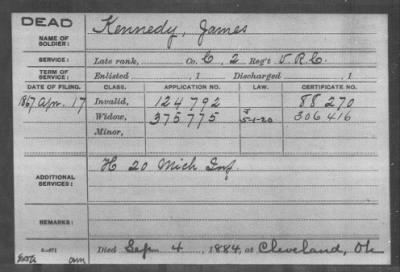 DEAD
NAME OF SOLDIER: Kennedy, James
SERVICE: Late rank, Co. C, 2 Reg't V.R.C.
TERM OF SERVICE: Enlisted , 1 Discharged , 1
DATE OF FILING. CLASS. APPLICATION NO. LAW. CERTIFICATE NO.
1867 Apr. 17 Invalid, 124792 88270
Widow, 375775 5-1-20 306416
Minor,
ADDITIONAL SERVICES: H 20 Mich Inf.
REMARKS:
Died Sep 4, 1884, at Cleveland, Oh